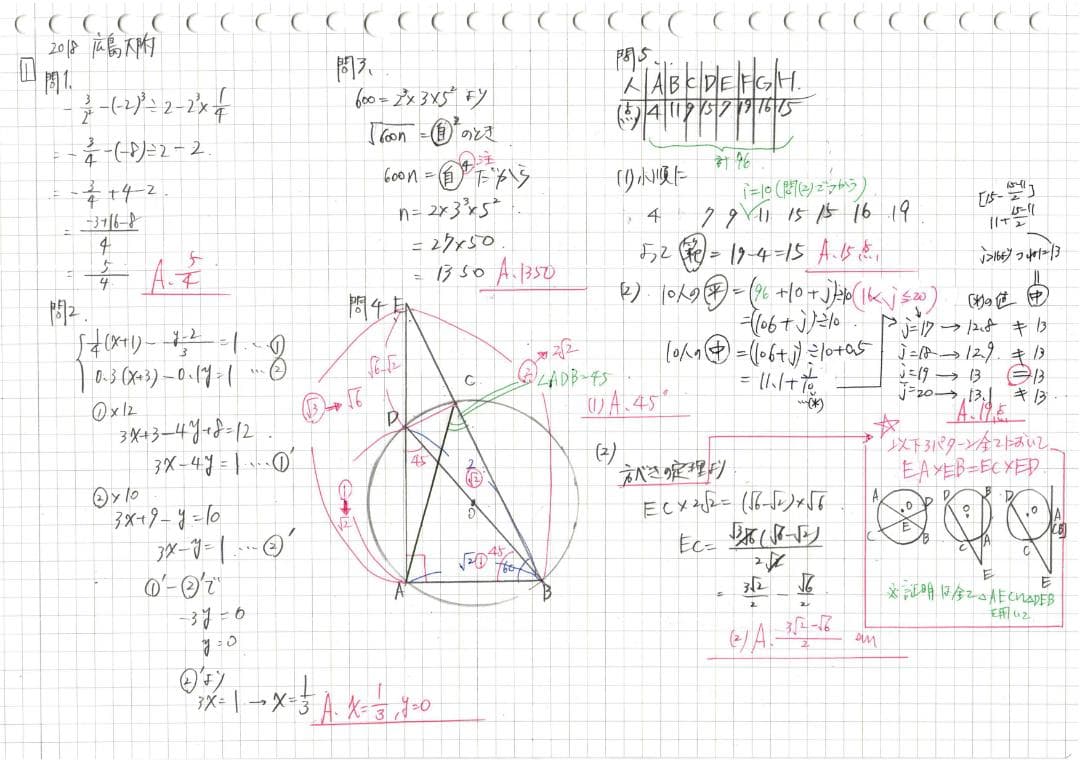 2018 広島大附
1
問1.
-3/2² -(-2)³÷2-2³×1/4
= -3/4 -(-8)÷2-2.
= -3/4 +4-2.
= (-3+16-8)/4
= 5/4 A. 5/4
問2.
{ 1/4(x+1) - (y-2)/3 = 1 … ①
0.3(x+3) - 0.1y = 1 … ②
①×12
3x+3-4y+8=12.
3x-4y=1 … ①′
②×10
3x+9-y=10
3x-y=1 … ②′
①′-②′で
-3y=0
y=0
②′より
3x=1 → x=1/3 A. x=1/3, y=0
問3、
600=2³×3×5² より
√600n = 自² のとき
600n = 自⁴ だから
注
n=2×3³×5²
= 27×50
= 1350 A. 1350
問4
E
√6-√2
2√2
∠ADB=45
C
√3 → √6
D
45
2
√2
O
① ↓ √2
√2 ① 45
60
A
B
(1) A. 45°
(2)
方べきの定理より
EC×2√2=(√6-√2)×√6
EC= √6(√6-√2)/2√2
= 3√2/2 - √6/2
(2) A. (3√2-√6)/2 cm
問5.
人 A B C D E F G H.
(点) 4 11 9 15 7 19 16 15
計96
(1) 小順に
i=10 (問(2)でつかう)
4 7 9 11 15 15 16 19
よって 範 = 19-4=15 A. 15点
(2). 10人の平 = (96+10+j)÷10 (16<j≦20)
=(106+j)÷10.
10人の中 =(106+j)÷10+0.5
= 11.1+ j/10
…(*)
[15- (15-11)/2]
11+ (15-11)/2
(*)の値 中
j=17 → 12.8 ≠ 13
j=18 → 12.9 ≠ 13
j=19 → 13 = 13
j=20 → 13.1 ≠ 13.
A. 19点
☆
以下3パターン全てにおいて
EA×EB=EC×ED.
A D O E C B
D B O C A E
D O A (B) C E
※証明は全て△AEC∽△DEB
を用いて